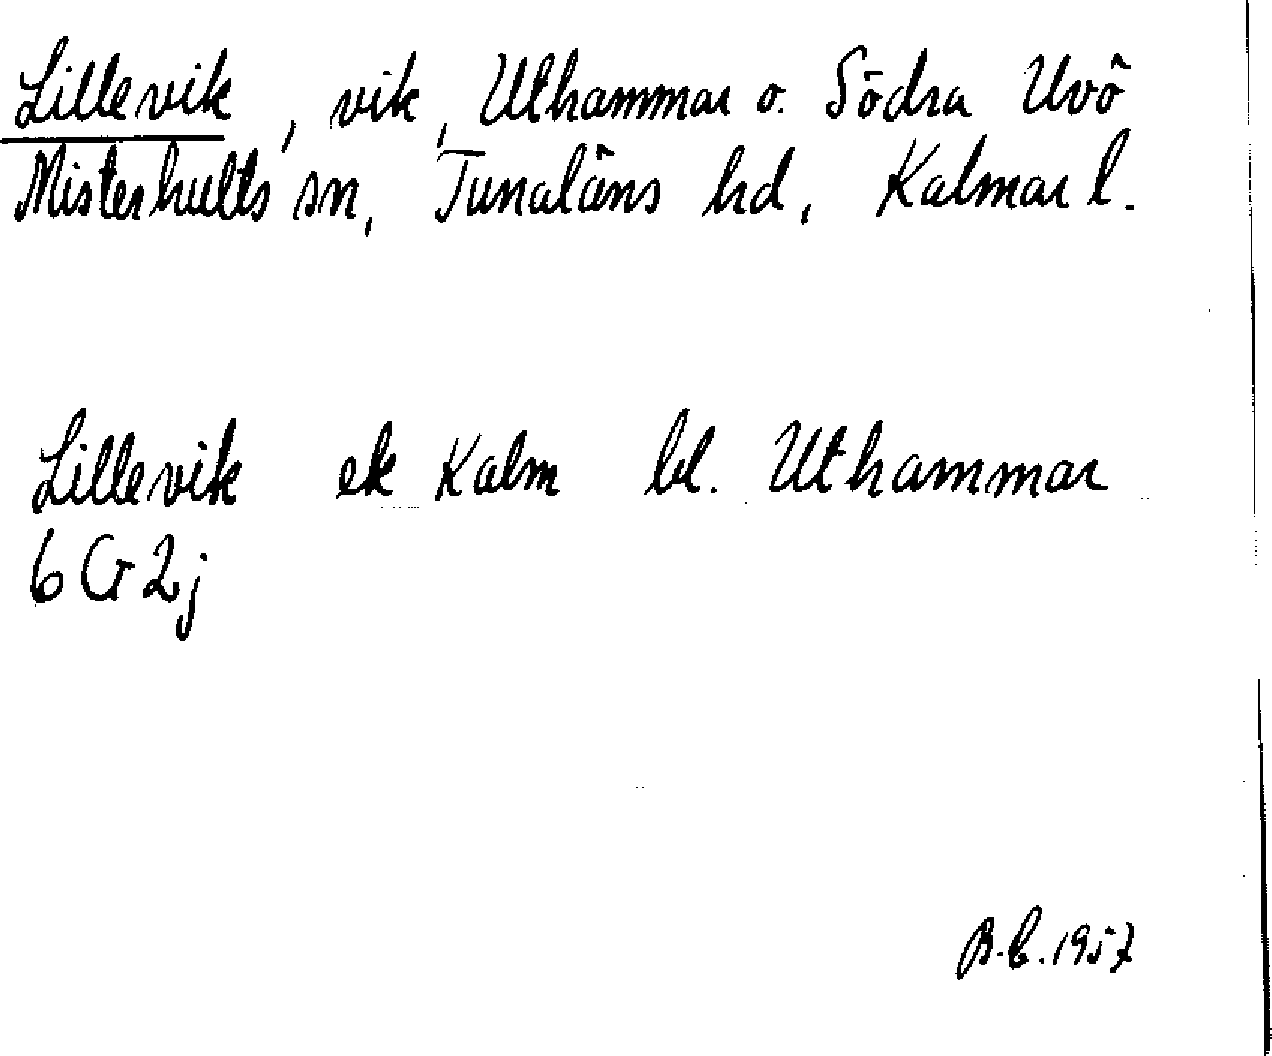 Lillevik, vik, Uthammar o. Södra Uvö
Misterhults sn, Tunaläns hd, Kalmar l.
Lillevik ek Kalm bl. Uthammar
6 G 2 j
B.E. 1957